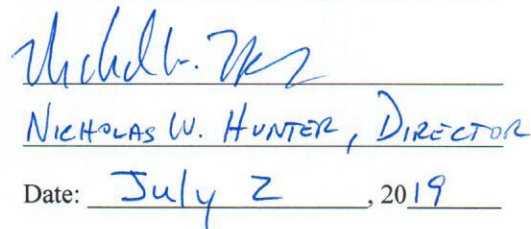 NICHOLAS W. HUNTER, DIRECTOR
Date: July 2, 2019